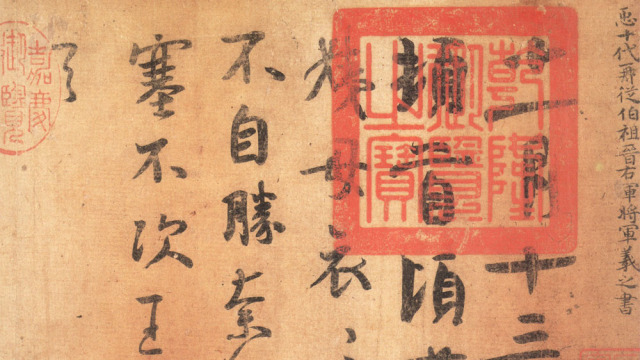 𢘑十代再從伯祖晉右軍將軍羲之書
乾隆
御覽
之寶
十一月十三
頓首頃
姨母哀
不自勝奈
塞不次王
嘉慶
御覽